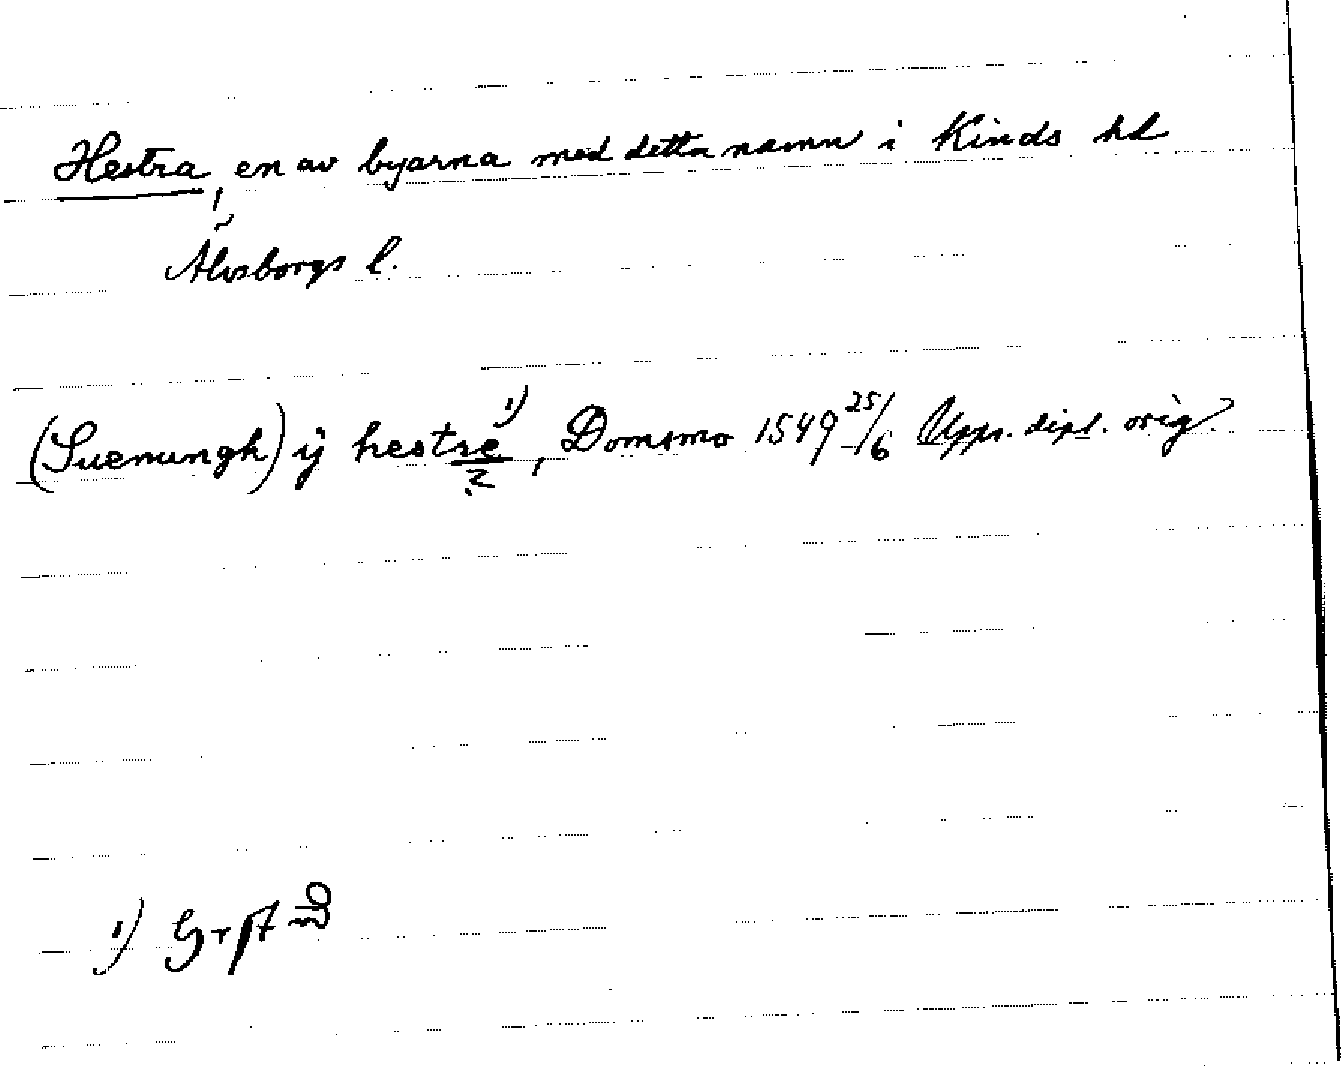 Hestra, en av byarna med detta namn i Kinds hd
Älvsborgs l.
(Suenungh) ij hestre ¹⁾, Domsmo 1549 25/6 Upps. dipl. orig.
?
1)